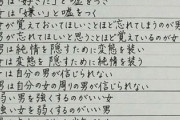 は「嫌い」と嘘をつく
が覚えておいてほしいことほど忘れてしまうのが男
男は忘れてほしいと思うことほど覚えているのが女
男は純情を隠すために変態を装い
女は変態を隠すために純情を装う
は自分の男が信じられない
男は自分の女の周りの男が信じられない
弱い男を強くするのがいい女
強い女を弱くするのがいい男